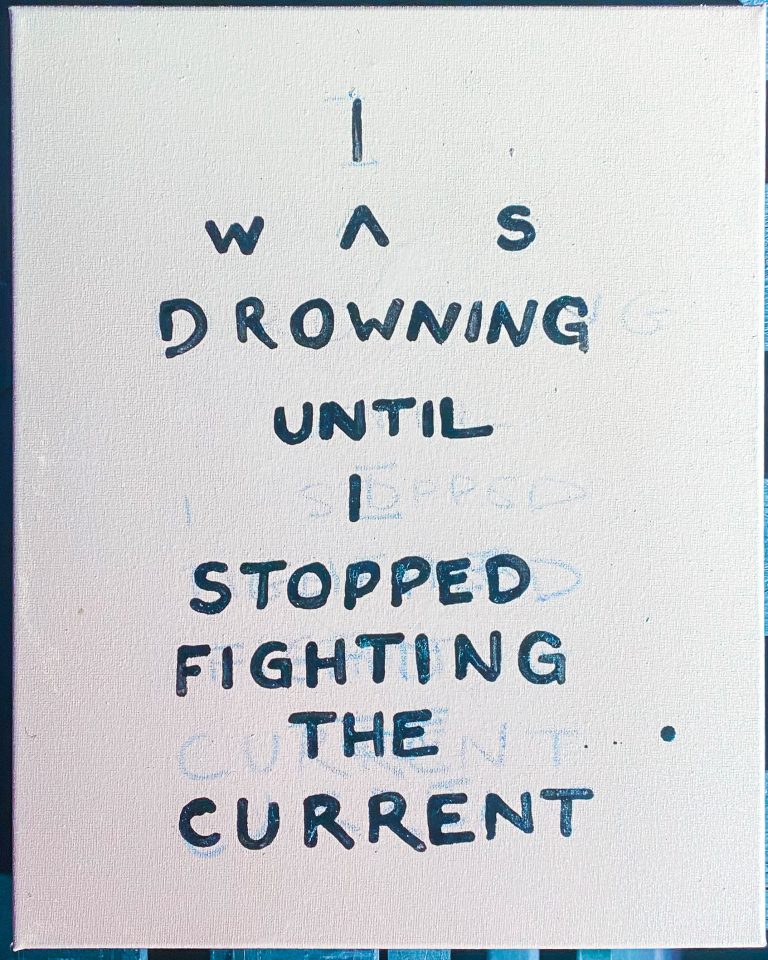 I
WAS
DROWNING
UNTIL
I
STOPPED
FIGHTING
THE
CURRENT